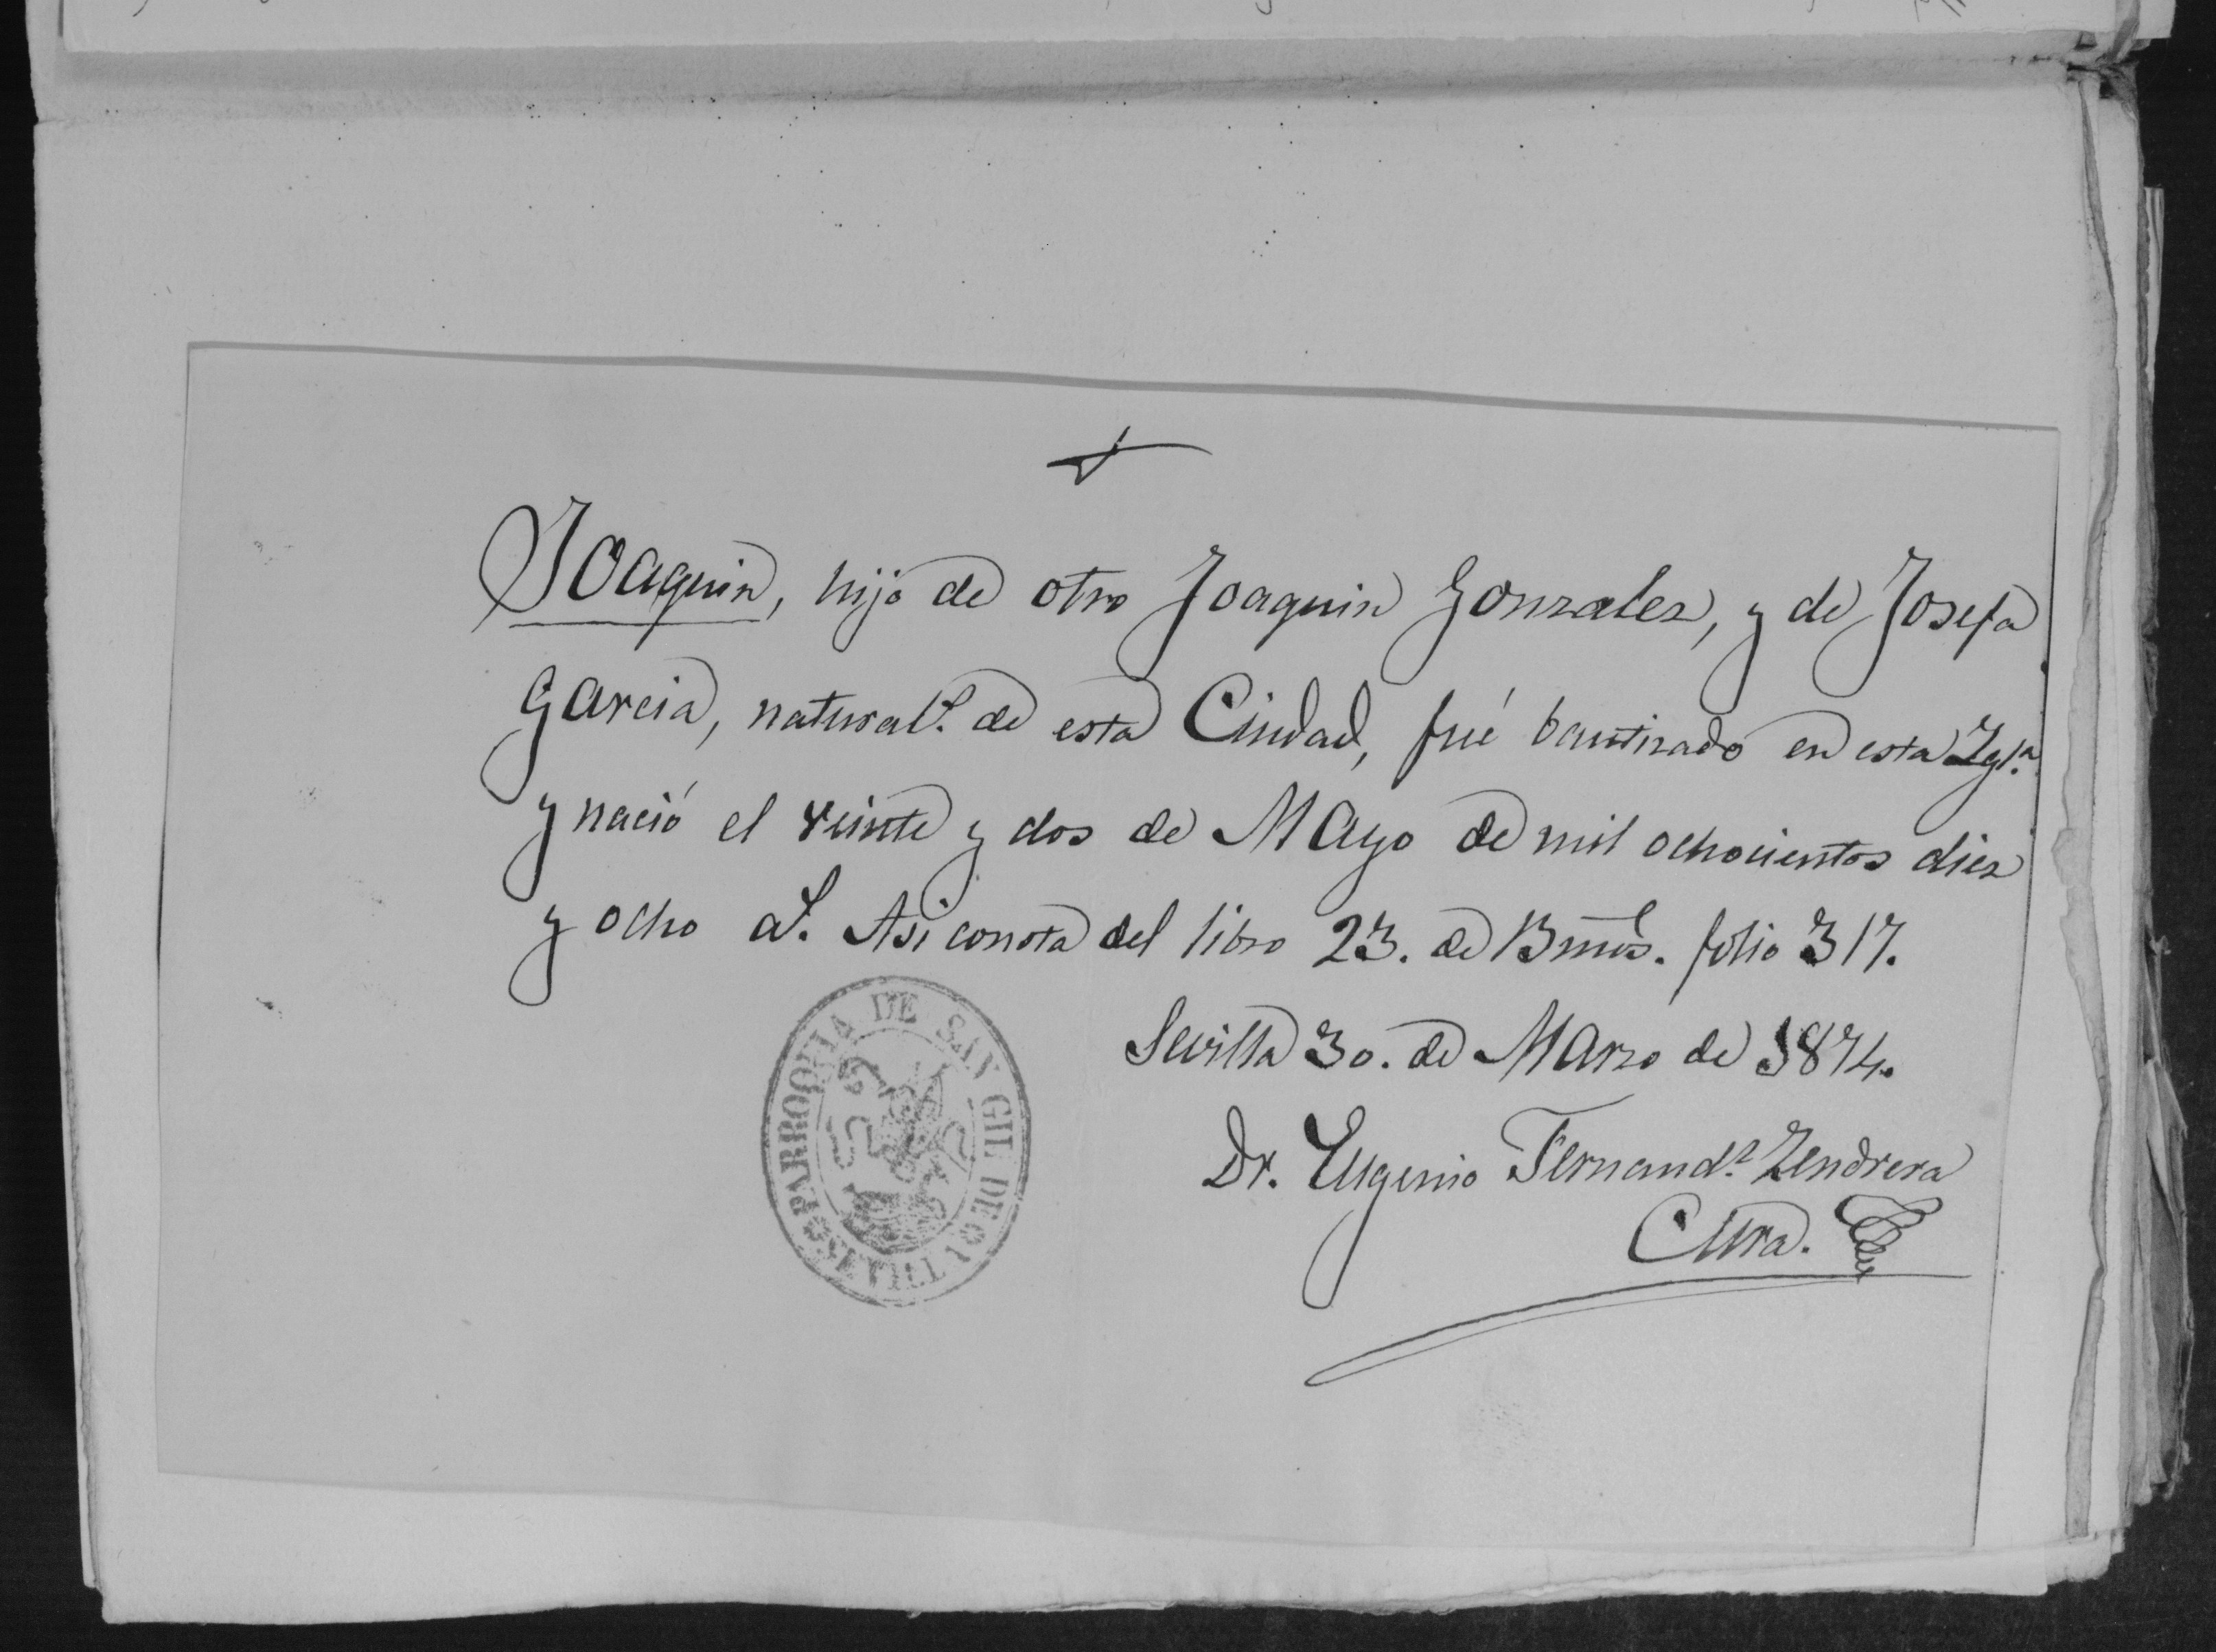 Joaquin, hijo de otro Joaquin Gonzalez, y de Josefa
Garcia, natural.s de esta Ciudad, fué bautizado en esta Igl.a
y nació el veinte y dos de Mayo de mil ochocientos diez
y ocho a.s. Asi consta del libro 23. de Bmos. folio 317.
Sevilla 30. de Marzo de 1874.
Dr. Eugenio Fernand.z Zendrera
Cura.
PARROQUIA DE SAN GIL DE SEVILLA